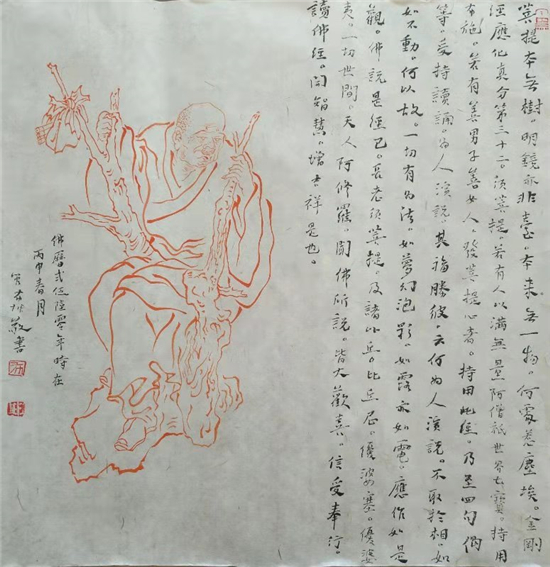 菩提本无樹。明鏡亦非台。本来无一物。何處惹塵埃。金剛
經應化真分第三十二。須菩提。若有人以滿無量阿僧祇世界七寶。持用
布施。若有善男子善女人。發菩提心者。持用此經。乃至四句偈
等。受持讀誦。為人演說。其福勝彼。云何為人演說。不取於相。如
如不動。何以故。一切有為法。如夢幻泡影。如露亦如電。應作如是
觀。佛說是經已。長老須菩提。及諸比丘。比丘尼。優婆塞。優婆
夷。一切世間。天人阿修羅。聞佛所說。皆大歡喜。信受奉行。
讀佛經。開智慧。增吉祥是也。
佛曆貳伍陸零年時在
丙申春月
敬書